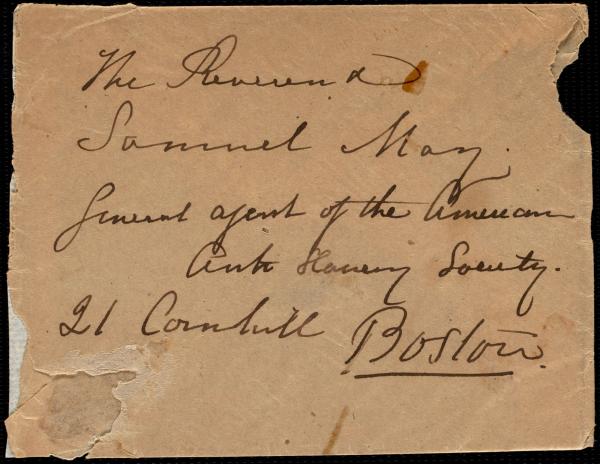 The Reverend
Samuel May.
General agent of the American
Anti Slavery Society.
21 Cornhill Boston.